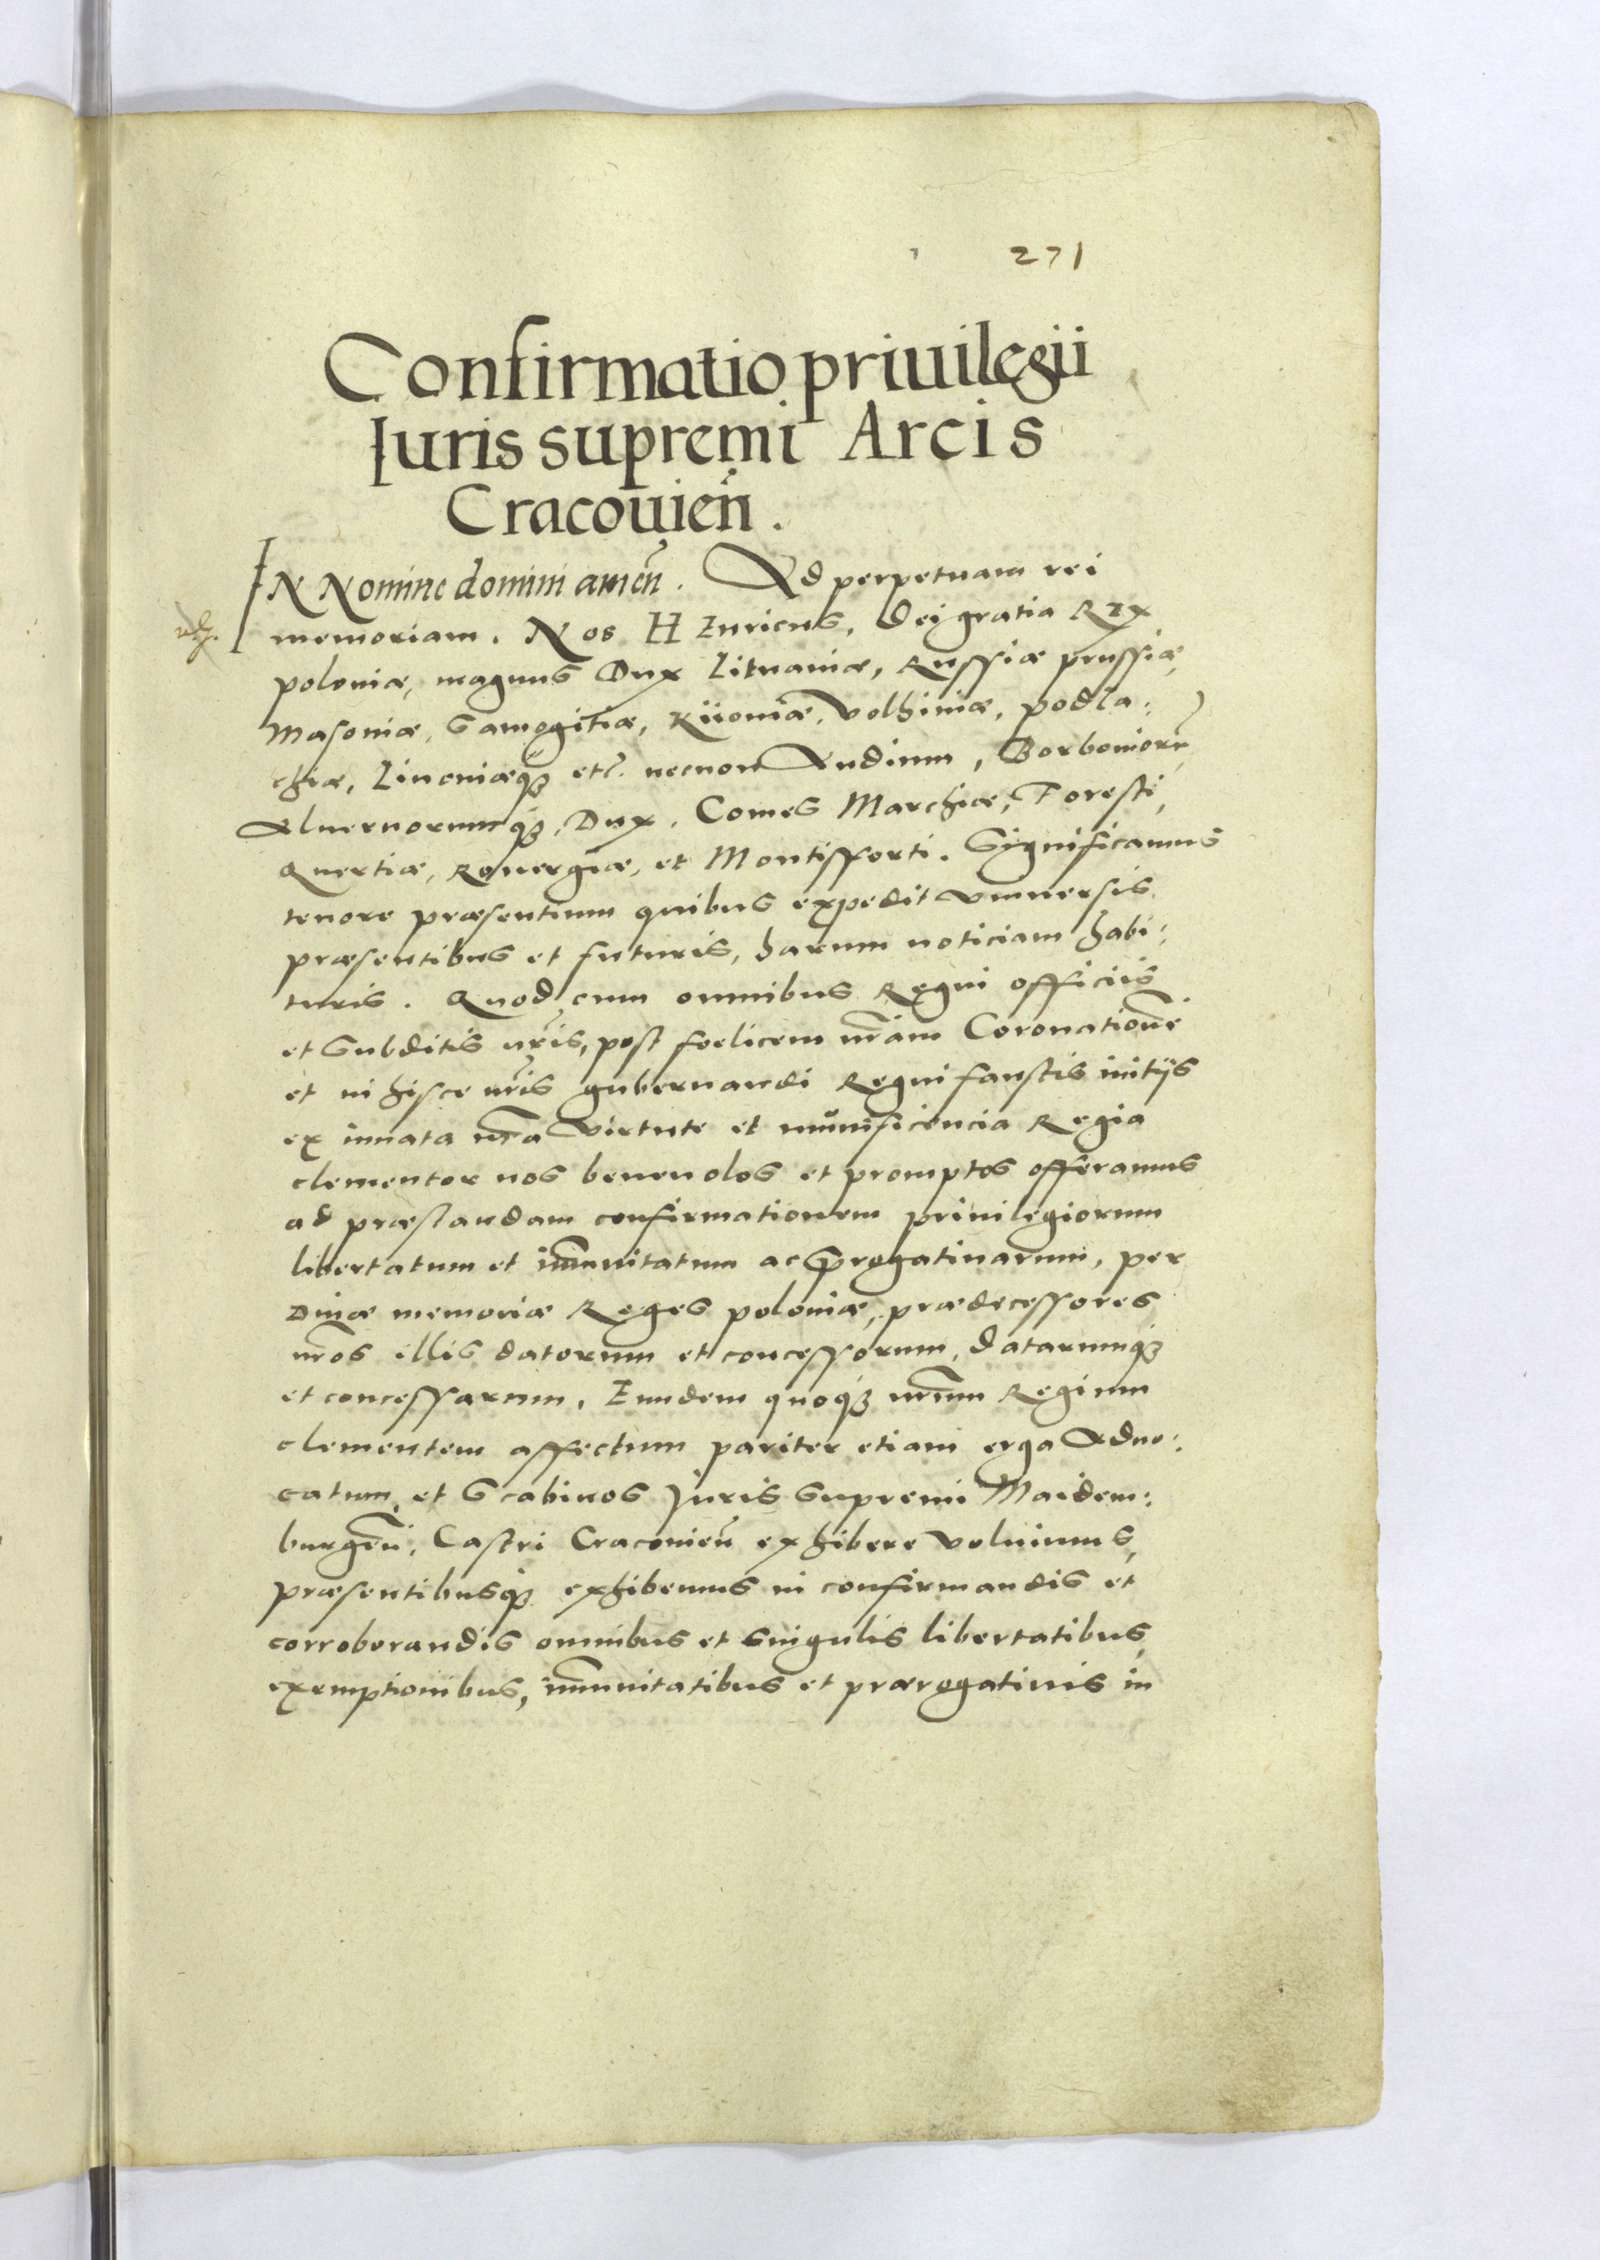 271
Confirmatio priuilegii
Iuris supremi Arcis
Cracouien̄.
IN Nomine domini amen̄. Ad perpetuam rei
memoriam. Nos HEnricus, Dei gratia REx
poloniæ, magnus Dux Lituaniæ, Russiæ prussiæ,
Masouiæ, Samogitiæ, Kiiouiæ, Volhiniæ, podla:
chiæ, Liuoniæq́ꝫ etc̃. necnon Andium, Borboniorū,
Aluernorumq́ꝫ, Dux, Comes Marchiæ, Foresti,
Quertiæ, Rouergiæ, et Montisforti. Significamus
tenore præsentium quibus expedit vniuersis
præsentibus et futuris, harum noticiam habi:
turis. Quod cum omnibus Regni officiis
et Subditis nr̃is, post foelicem nr̃am Coronationē
et in hisce nr̃is gubernandi Regni faustis initijs
ex innata nr̃a virtute et munificencia Regia
clementer nos beneuolos et promptos offeramus
ad præstandam confirmationem priuilegiorum
libertatum et im̄unitatum ac Prerogatiuarum, per
Diuæ memoriæ Reges poloniæ, prædecessores
nr̃os illis datorum et concessorum, datarumq́ꝫ
et concessarum. Eundem quoq́ꝫ nr̃um Regium
clementem affectum pariter etiam erga Aduo:
catum, et Scabinos Juris Supremi Maidem:
burgen̄, Castri Cracouien̄ exhibere voluimus,
præsentibusq́ꝫ exhibemus in confirmandis et
corroborandis omnibus et Singulis libertatibus,
exemptionibus, im̄unitatibus et prærogatiuis in